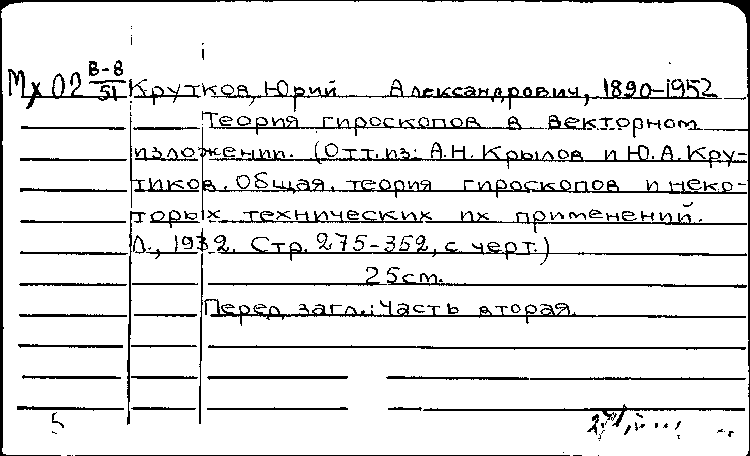 Мх 02 В-8/51 Крутков, Юрий Александрович, 1890-1952
Теория гироскопов в векторном
изложении. (Отт.из: А.Н. Крылов и Ю.А. Кру-
тиков. Общая теория гироскопов и неко-
торых технических их применений.
Л., 1932. Стр. 275-352, с черт.)
25cm.
Перед загл.: Часть вторая.
5